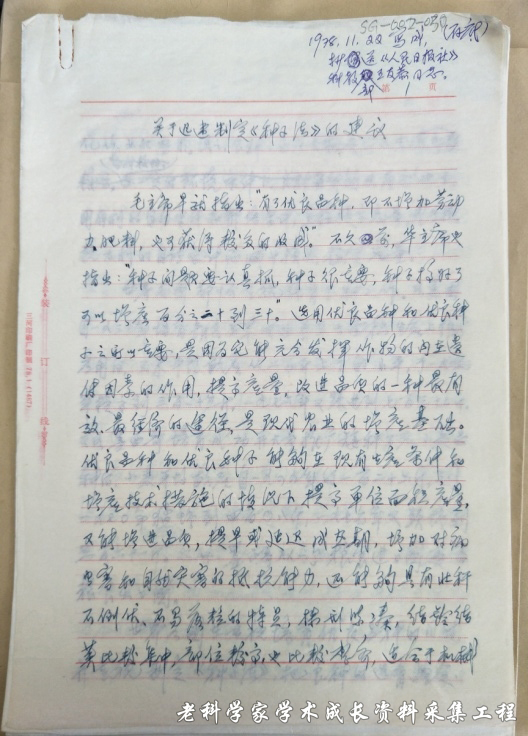 SG-002-038
1978.11.22写成(存底)
抄送《人民日报社》
科教部王友恭同志.
第 1 页
关于迅速制定《种子法》的建议
毛主席早就指出:"有了优良品种,即不增加劳动
力、肥料,也可获得较多的收成"。不久前,华主席也
指出:"种子问题要认真抓,种子很重要,种子搞好了
可以增产百分之二十到三十"。选用优良品种和优良种
子之所以重要,是因为它能充分发挥作物的内在遗
传因素的作用,提高产量,改进品质的一种最有
效、最经济的途径,是现代农业的增产基础。
优良品种和优良种子能够在现有生产条件和
增产技术措施的情况下提高单位面积产量,
又能增进品质,提早或延迟成熟期,增加对病
虫害和自然灾害的抵抗能力,还能够具有比秆
不倒伏、不易落粒的特点,株型紧凑,结铃结
荚比较集中,部位较高也比较整齐,适合于机耕
装订线
老科学家学术成长资料采集工程